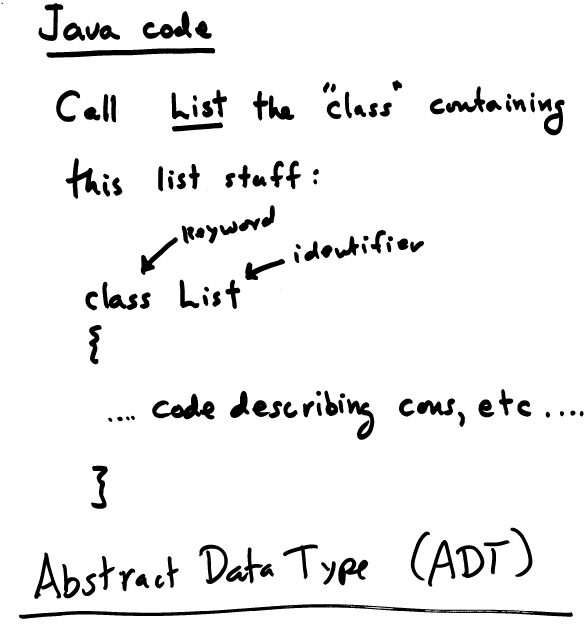 Java code
Call List the "class" containing
this list stuff:
keyword
identifier
class List
{
.... code describing cons, etc ....
}
Abstract Data Type (ADT)